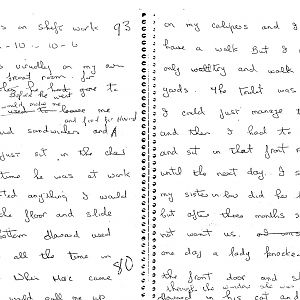 s on shift work 93
- 10 - 10 - 6
s usually on my own
front room. for
he had gone to
Before he went
make me
used to leave me
and food for
sandwiches and A
just sit in the chair
time he was at work
ted anything I would
he floor and slide
ottom Howard used
all the time in
80
When came
would call me up
on my calipers and
have a walk But I
only and walk
yards. The toilet was
I could just manage
and then I had to
and sit in that front
until the next day. I
my sister-in-law did
but after three months
not want us.
one day a lady knocke
the front door and
through the window she
Howard in his cot and